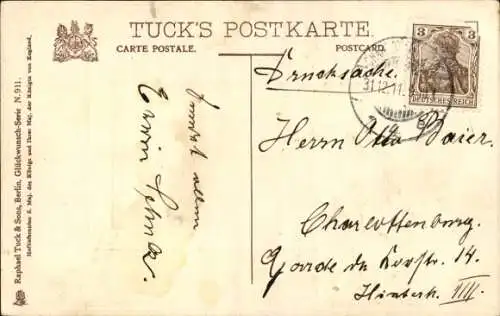 TUCK'S POSTKARTE.
CARTE POSTALE. POSTCARD.
Raphael Tuck & Sons, Berlin, Glückwunsch-Serie N. 911.
Hoflieferanten S. Maj. des Königs und Ihrer Maj. der Königin von England.
3 3
DEUTSCHES REICH
31.12.11.
Drucksache.
Herrn Otto Baier.
Charlottenburg.
Garde du Korpsstr. 14.
Hinterh. IIII.
Erwin